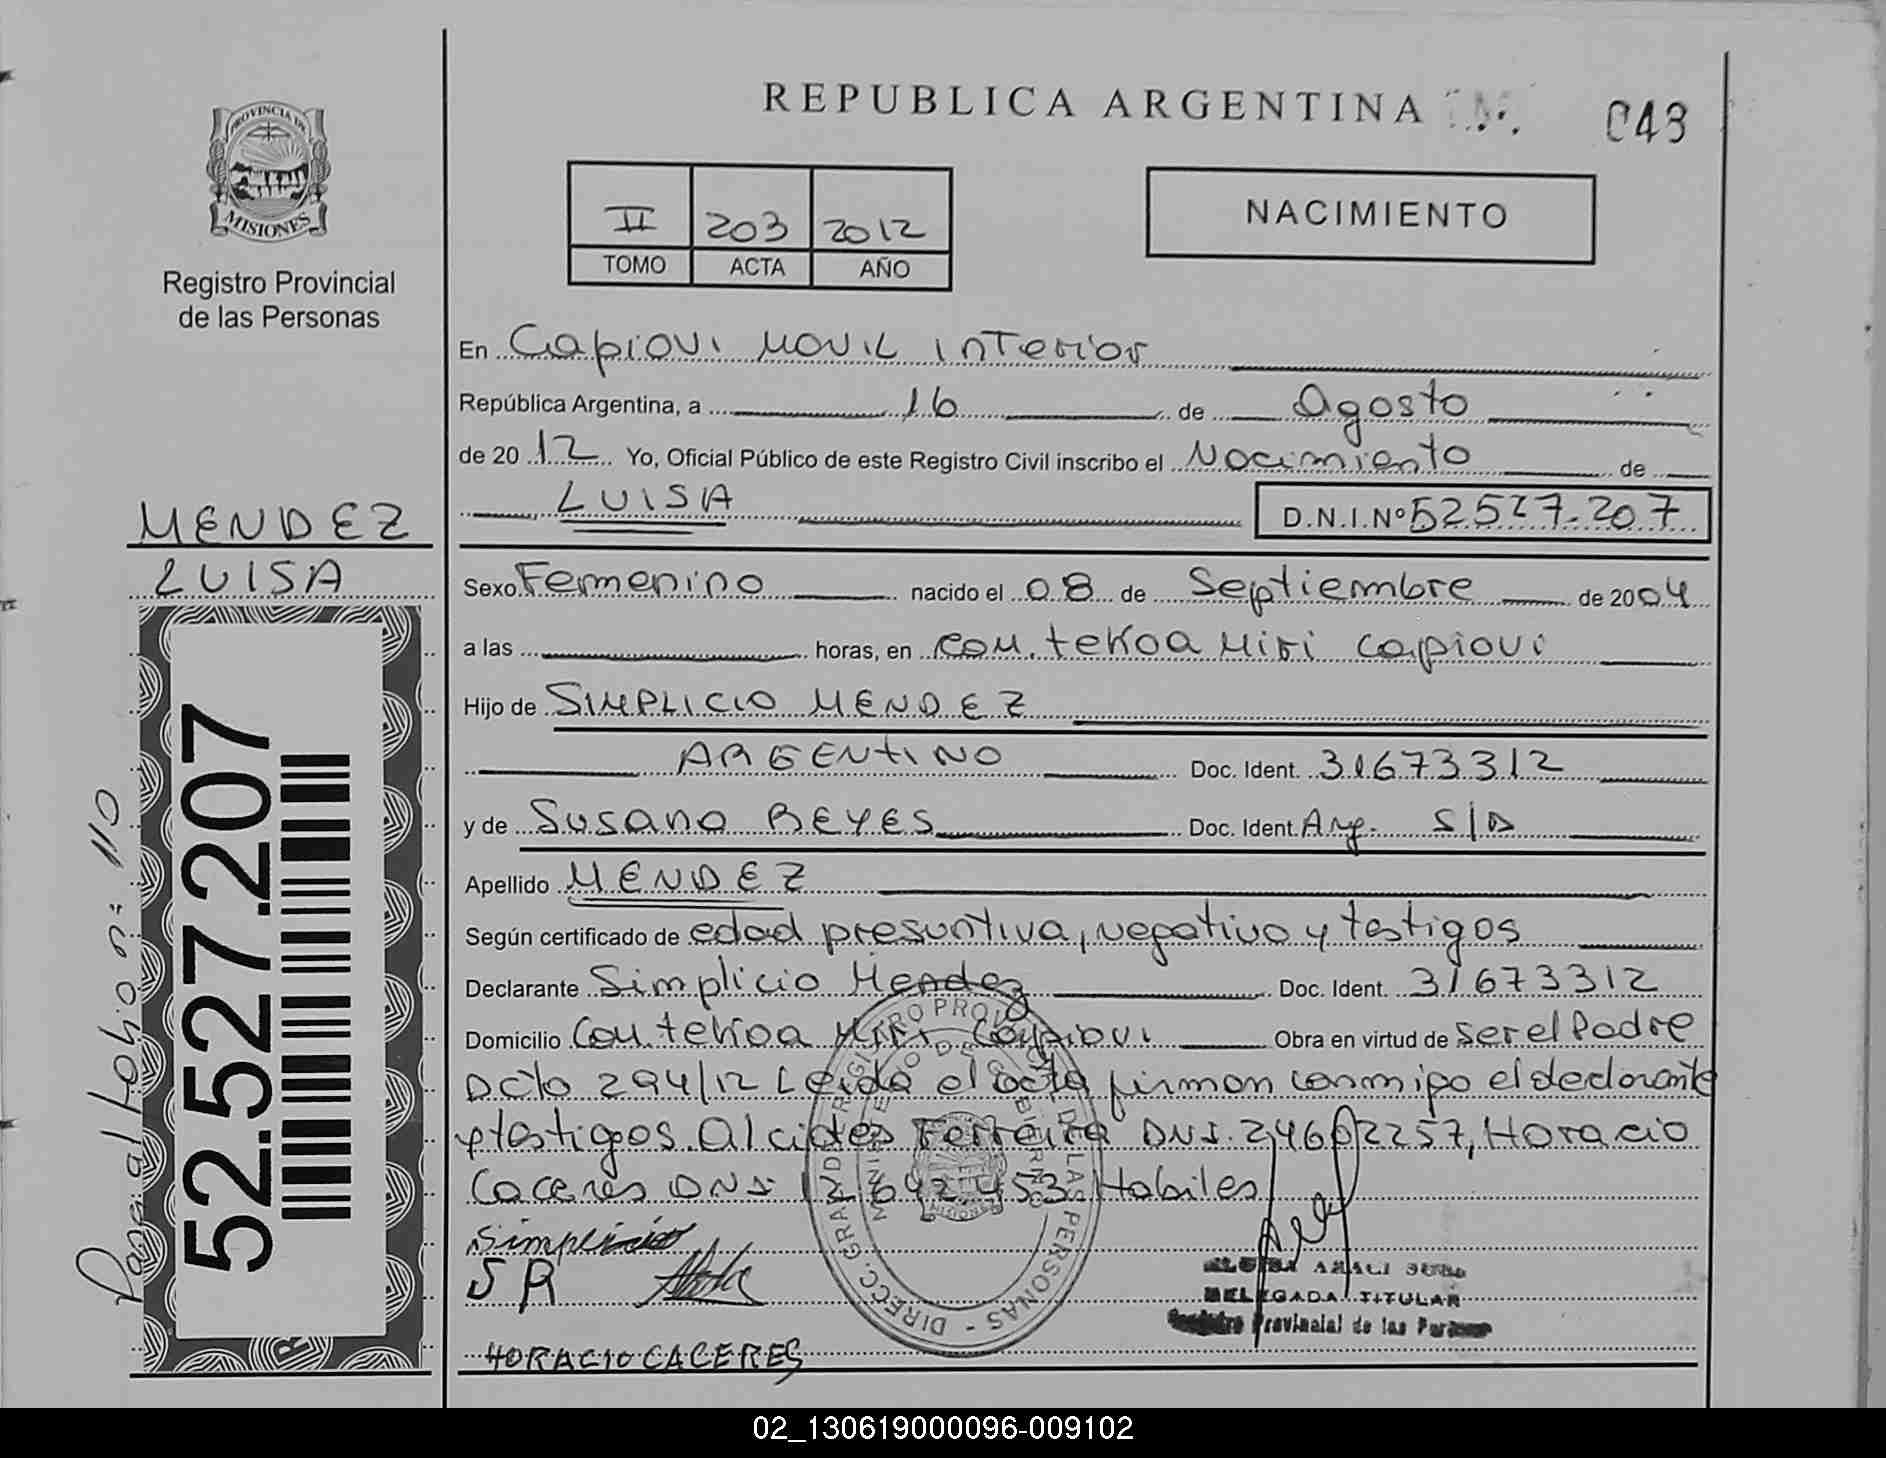 REPUBLICA ARGENTINA
043
PROVINCIA DE
MISIONES
Registro Provincial
de las Personas
II 203 2012
TOMO ACTA AÑO
NACIMIENTO
En Capiovi Movil Interior
República Argentina, a 16 de Agosto
de 2012 Yo, Oficial Público de este Registro Civil inscribo el Nacimiento de
LUISA D.N.I.Nº 52527.207
MENDEZ
LUISA
52.527.207
Sexo Femenino nacido el 08 de Septiembre de 2004
a las horas, en Com. tekoa Miri Capiovi
Hijo de SIMPLICIO MENDEZ
ARGENTINO Doc. Ident. 31673312
y de Susana REYES Doc. Ident. Arg. S/D
Apellido MENDEZ
Según certificado de edad presuntiva, negativo y testigos
Declarante Simplicio Mendez Doc. Ident. 31673312
Domicilio Com. tekoa Miri Capiovi Obra en virtud de ser el Padre
Dcto 294/12 Leida el acta firman conmigo el declarante
y testigos. Alcides Ferreira DNI. 24602257, Horacio
Caceres DNI Habiles
Simplicio
S R
HORACIO CACERES
DELEGADA TITULAR
Registro Provincial de las Personas
02_130619000096-009102